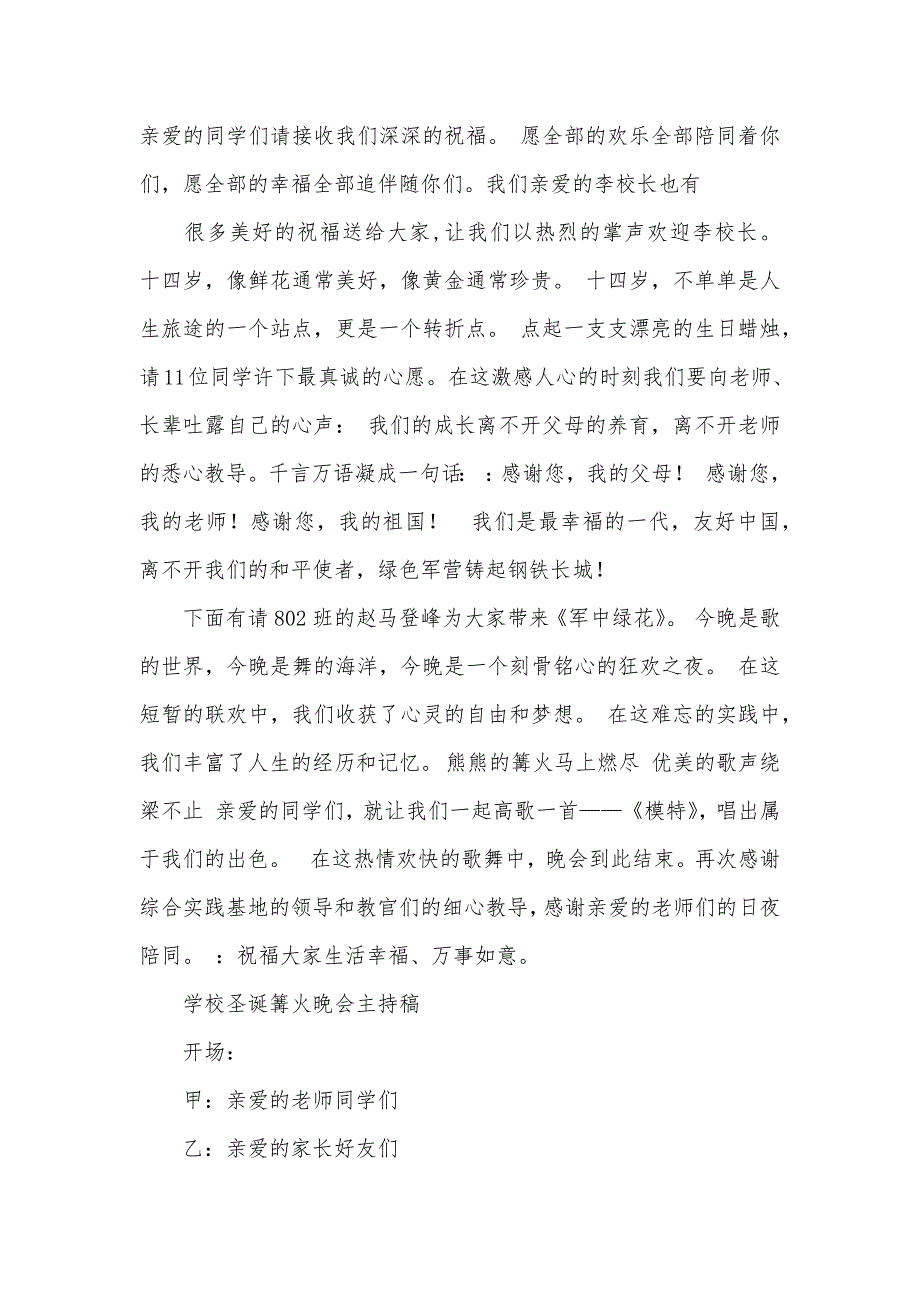 亲爱的同学们请接收我们深深的祝福。 愿全部的欢乐全部陪同着你
们，愿全部的幸福全部追伴随你们。我们亲爱的李校长也有
很多美好的祝福送给大家,让我们以热烈的掌声欢迎李校长。
十四岁，像鲜花通常美好，像黄金通常珍贵。 十四岁，不单单是人
生旅途的一个站点，更是一个转折点。 点起一支支漂亮的生日蜡烛，
请11位同学许下最真诚的心愿。在这激感人心的时刻我们要向老师、
长辈吐露自己的心声： 我们的成长离不开父母的养育，离不开老师
的悉心教导。千言万语凝成一句话：：感谢您，我的父母！ 感谢您，
我的老师！感谢您，我的祖国！ 我们是最幸福的一代，友好中国，
离不开我们的和平使者，绿色军营铸起钢铁长城！
下面有请802班的赵马登峰为大家带来《军中绿花》。 今晚是歌
的世界，今晚是舞的海洋，今晚是一个刻骨铭心的狂欢之夜。 在这
短暂的联欢中，我们收获了心灵的自由和梦想。 在这难忘的实践中，
我们丰富了人生的经历和记忆。熊熊的篝火马上燃尽 优美的歌声绕
梁不止 亲爱的同学们，就让我们一起高歌一首——《模特》，唱出属
于我们的出色。 在这热情欢快的歌舞中，晚会到此结束。再次感谢
综合实践基地的领导和教官们的细心教导，感谢亲爱的老师们的日夜
陪同。 ：祝福大家生活幸福、万事如意。
学校圣诞篝火晚会主持稿
开场：
甲：亲爱的老师同学们
乙：亲爱的家长好友们